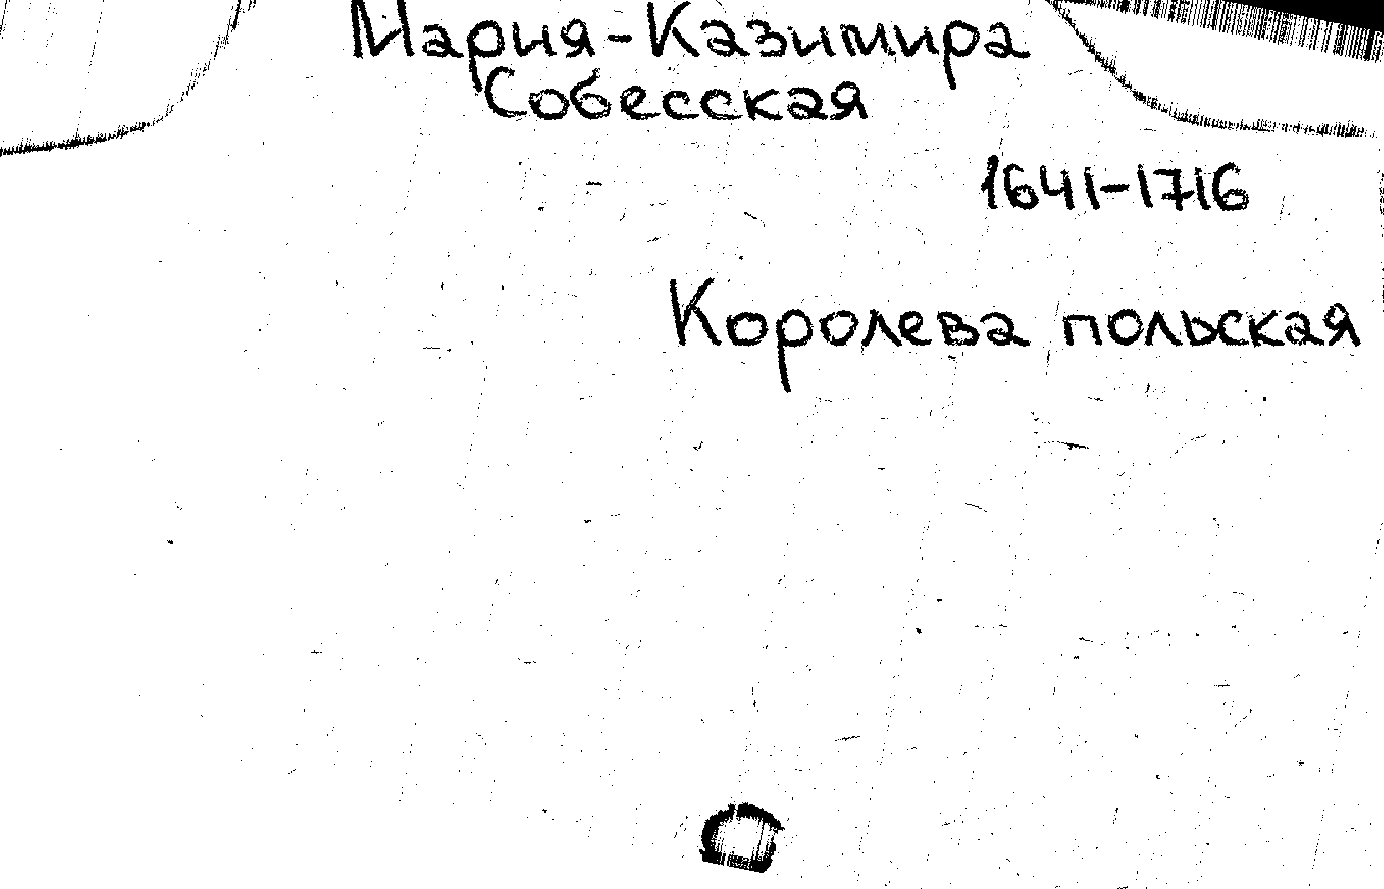 Мария-Казимира
Собесская
1641-1716
Королева польская